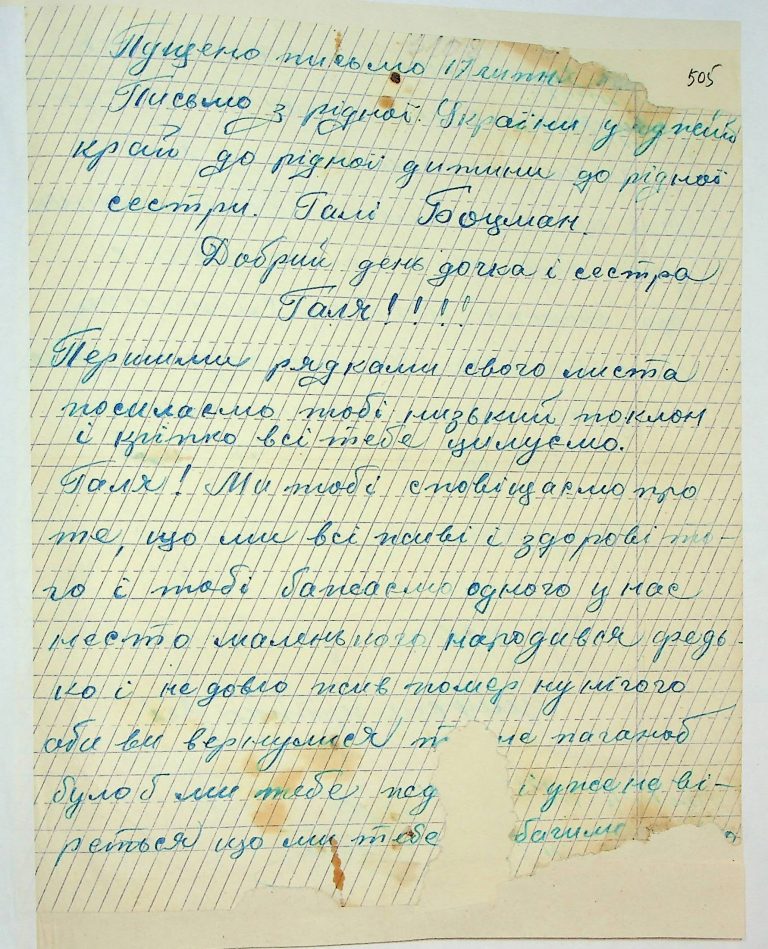 505
Пущено письмо 17 липн
Письмо з рідної України у чужий
край до рідної дитини до рідної
сестри. Галі Боцман.
Добрий день дочка і сестра
Галя!!!!!
Першими рядками свого листа
посилаємо тобі низький поклон
і кріпко всі тебе цилуємо.
Галя! Ми тобі сповіщаємо про
те, що ми всі живі і здорові то-
го і тобі бажаємо одного у нас
нєсто маленького народився федь
ко і недовго жив помер ну нічого
аби ви вернулися т не паганоб
було б ми тебе жд і уже не ві-
реться що ми тебе бачимо